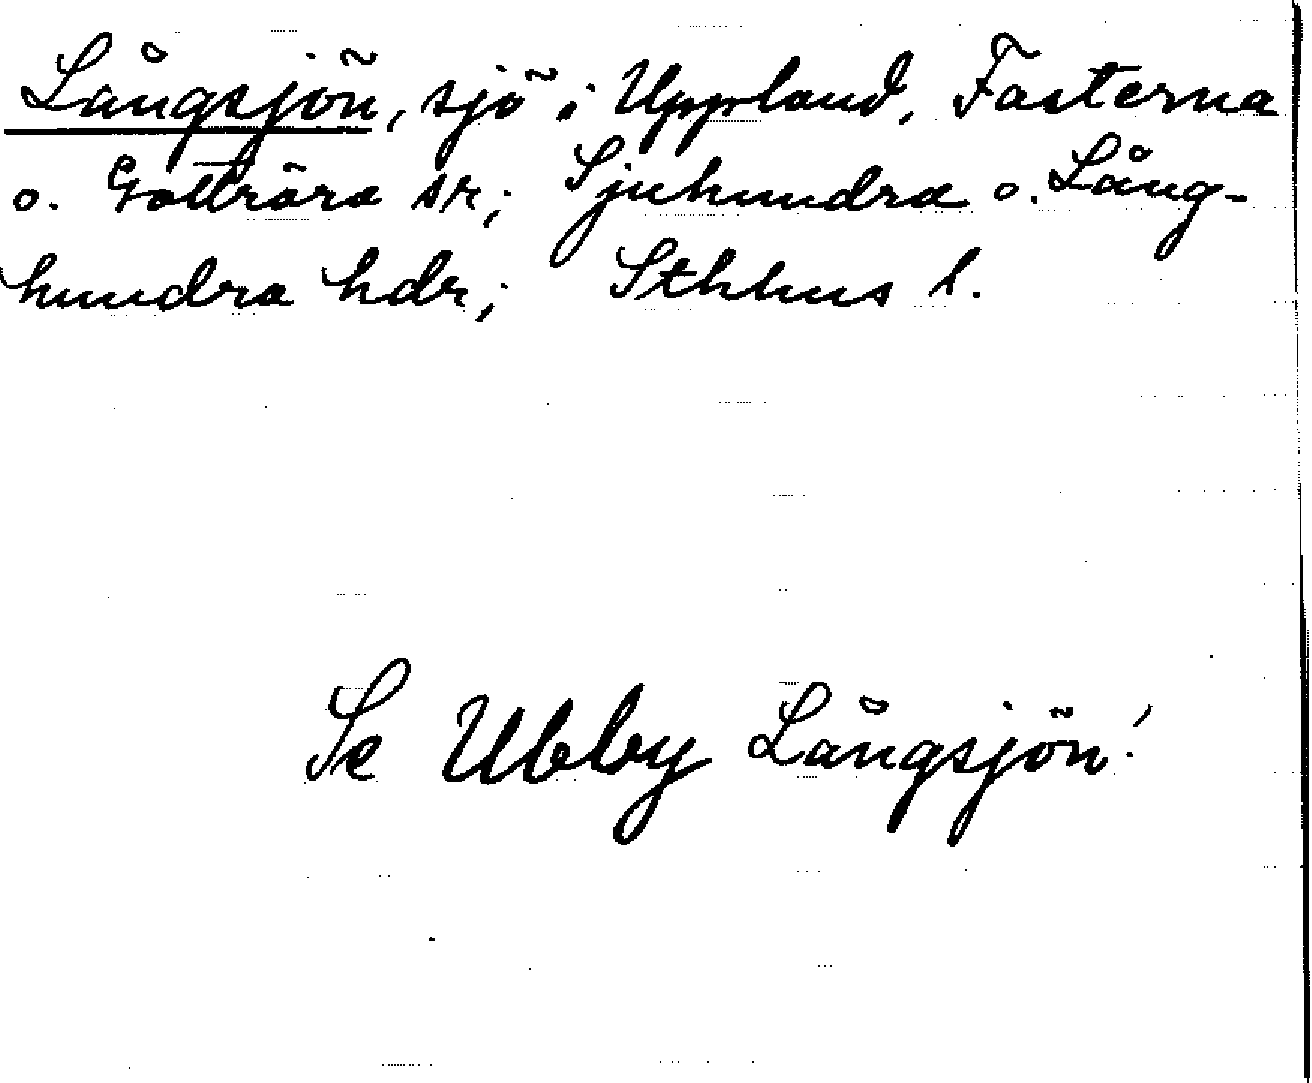 Långsjön, sjö i Uppland, Fasterna
o. Gottröra sk; Sjuhundra o. Lång-
hundra hdr; Sthhus l.
Se Ubby Långsjön!